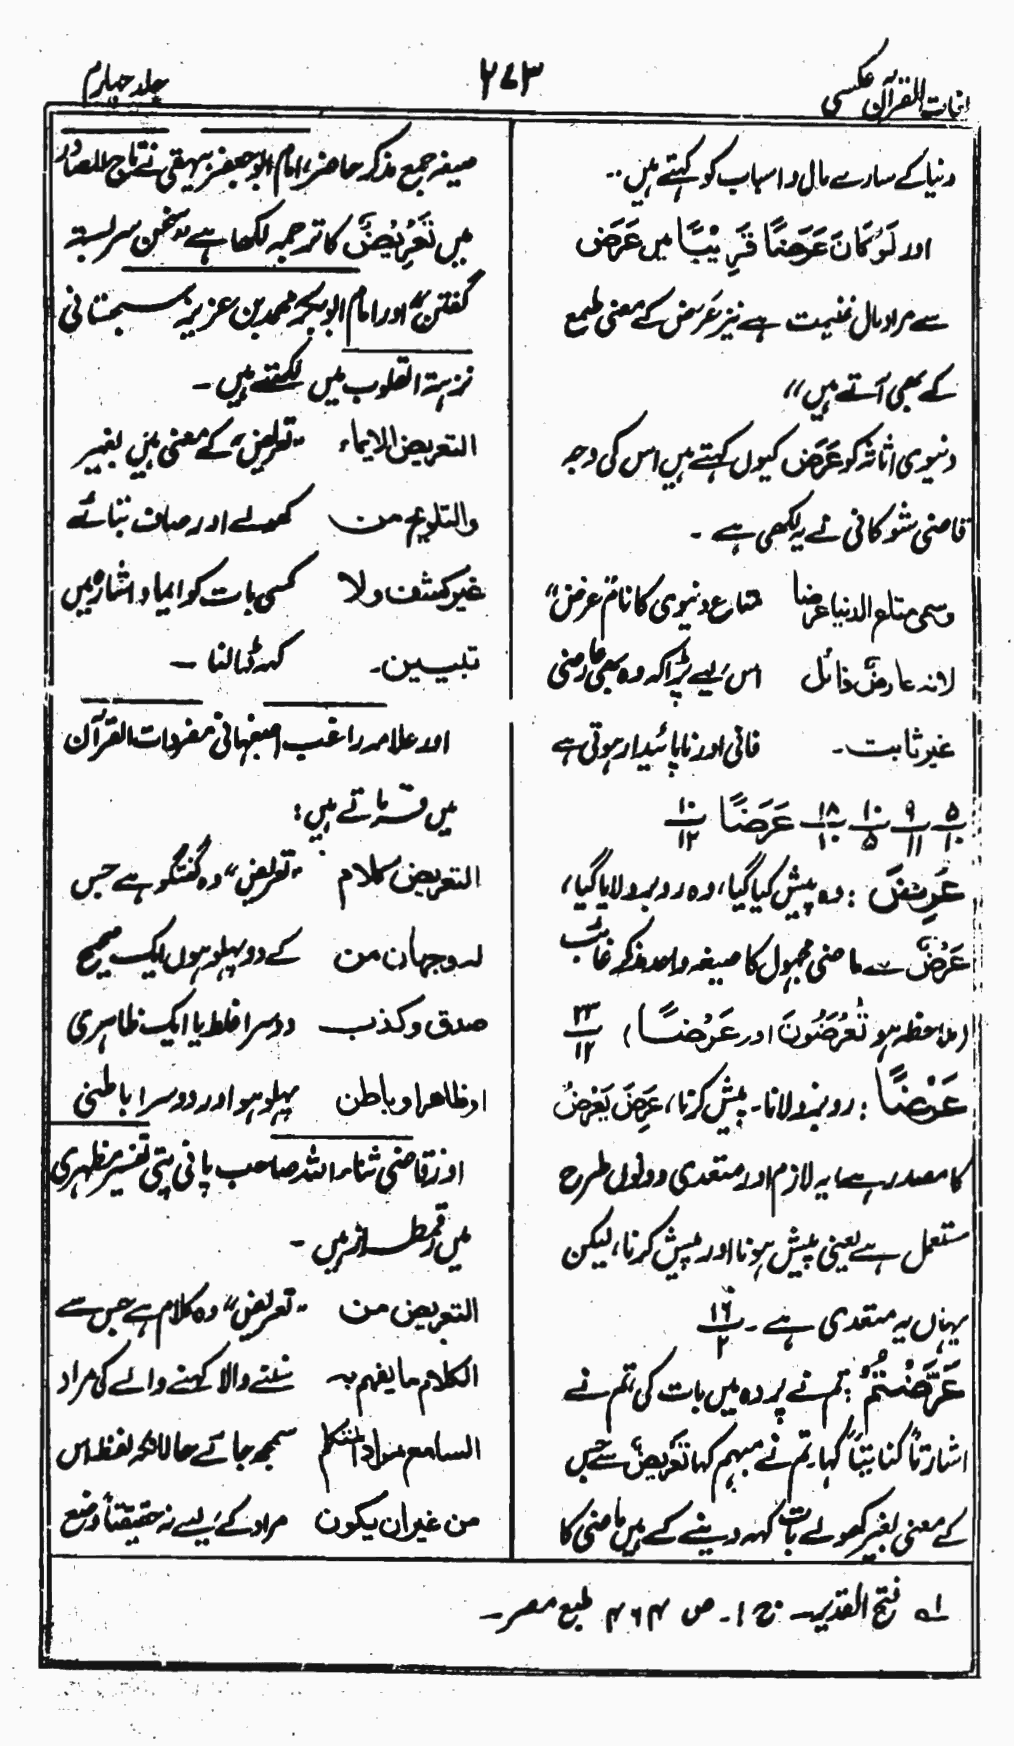 لغات القرآن عکسی
۲۷۳
جلد چہارم
دنیا کے سارے مال و اسباب کو کہتے ہیں..
اور لَوْ كَانَ عَرَضًا قَرِيْبًا میں عَرَض
سے مراد مال غنیمت ہے نیز عَرَض کے معنی طمع
کے بھی آتے ہیں"
دنیوی اثاثہ کو عَرَض کیوں کہتے ہیں اس کی وجہ
قاضی شوکانی نے یہ لکھی ہے ۔
وسمی متاع الدنیا عرضا متاع دنیوی کا نام عرض"
لانہ عارض زائل اس لیے پڑا کہ وہ بھی عارضی
غیر ثابت۔ فانی اور ناپائیدار ہوتی ہے
۵/۱۰ ۹/۱۱ ۱۰/۵ ۱۸/۱۰ عَرَضًا ۱۰/۱۲
عُرِضَ : وہ پیش کیا گیا، وہ روبرو لایا گیا،
عَرْضٌ سے ماضی مجہول کا صیغہ واحد مذکر غائب
(ملاحظہ ہو تُعْرَضُونَ اور عَرْضًا) ۲۳/۱۲
عَرْضًا : روبرو لانا۔ پیش کرنا، عَرِضَ يَعْرِضُ
کا مصدر ہے یہ لازم اور متعدی دونوں طرح
مستعمل ہے یعنی پیش ہونا اور پیش کرنا، لیکن
یہاں یہ متعدی ہے ۔ ۱۶/۲
عَرَّضْتُمْ : تم نے پردہ میں بات کی تم نے
اشارتاً کنایتاً کہا۔ تم نے مبہم کہا تَعْرِيْضٌ سے جس
کے معنی بغیر کھولے بات کہہ دینے کے ہیں ماضی کا
صیغہ جمع مذکر حاضر، امام ابو جعفر بیہقی نے تاج المصادر
میں تَعْرِيْضٌ کا ترجمہ لکھا ہے "سخن سربستہ
گفتن" اور امام ابوبکر محمد بن عزیز سجستانی
نزہتہ القلوب میں لکھتے ہیں ۔
التعریض الایماء "تعریض" کے معنی ہیں بغیر
والتلویح من کھولے اور صاف بتائے
غیر کشف ولا کسی بات کو ایما و اشارہ میں
تبیین۔ کہہ ڈالنا ۔
اور علامہ راغب اصفہانی مفردات القرآن
میں فرماتے ہیں :
التعریض کلام "تعریض" وہ گفتگو ہے جس
لہ وجہان من کے دو پہلو ہوں ایک صحیح
صدق و کذب دوسرا غلط یا ایک ظاہری
او ظاہر او باطن پہلو ہو اور دوسرا باطنی
اور قاضی ثناء اللہ صاحب پانی پتی تفسیر مظہری
میں رقمطراز ہیں ۔
التعریض من "تعریض" وہ کلام ہے جس سے
الکلام ما یفہم بہ سننے والا کہنے والے کی مراد
السامع مراد المتکلم سمجھ جائے حالانکہ لفظ اس
من غیر ان یکون مراد کے لیے نہ حقیقتاً وضع
۱ے فتح القدیر۔ ج ۱۔ ص ۴۶۴ طبع مصر۔